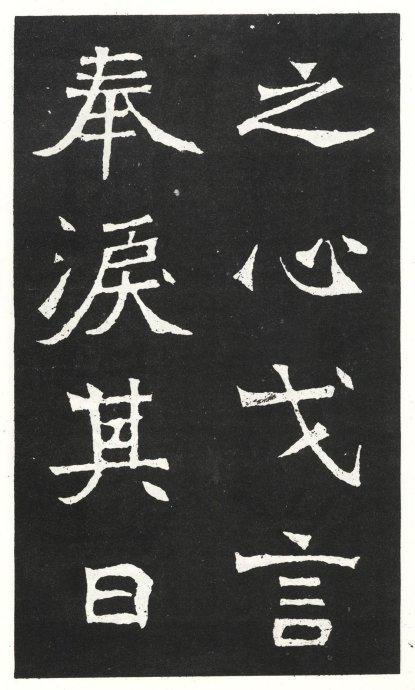 之心戈言
奉淚其日